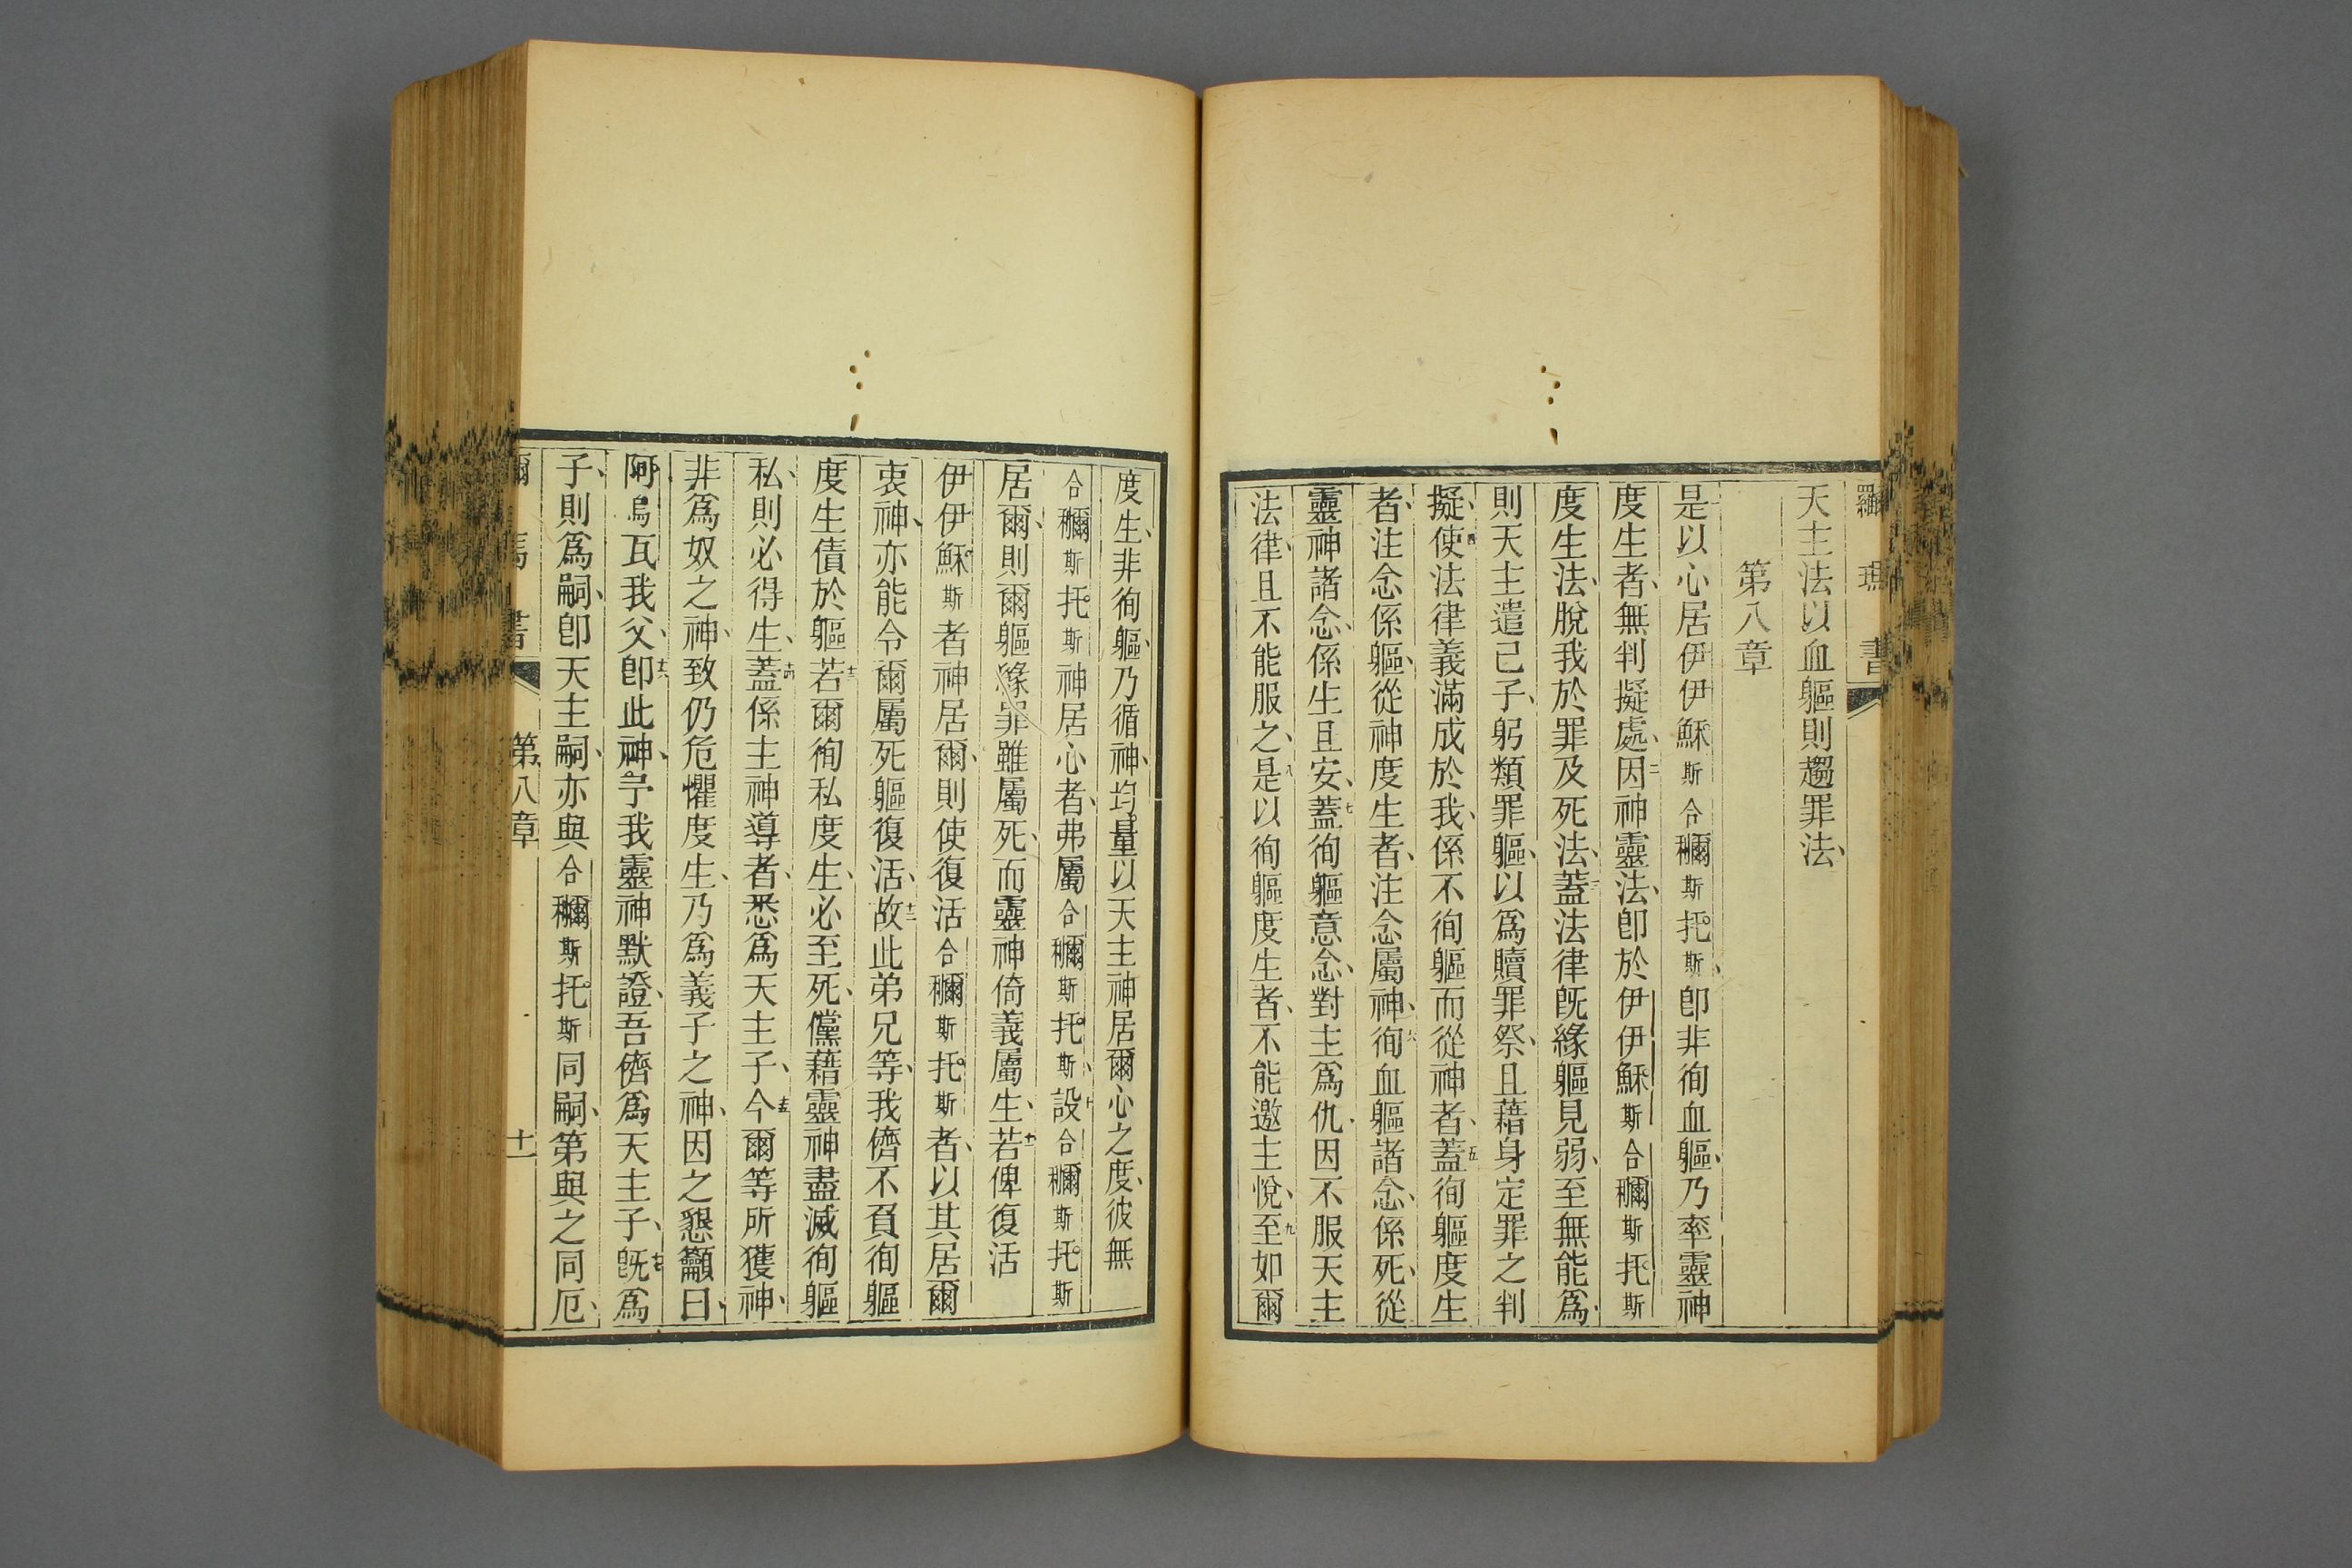 羅瑪書
天主法以血軀則趨罪法、
第八章
是以心居伊伊穌斯合穪斯托斯、卽非徇血軀、乃率靈神
度生者、無判擬處、二因神靈法、卽於伊伊穌斯合穪斯托斯
度生法、脫我於罪及死法、三蓋法律旣緣軀見弱、至無能爲、
則天主遣己子、躬類罪軀、以爲贖罪祭、且藉身定罪之判
擬、四使法律義滿成於我、係不徇軀而從神者、五蓋徇軀度生
者、注念係軀、從神度生者、注念屬神、六徇血軀諸念、係死、從
靈神諸念、係生且安、七蓋徇軀意念、對主爲仇、因不服天主
法律、且不能服之、八是以徇軀度生者、不能邀主悅、九至如爾
度生、非徇軀、乃循神、均量以天主神居爾心之度、彼無
合穪斯托斯神居心者、弗屬合穪斯托斯、十設合穪斯托斯
居爾、則爾軀緣罪雖屬死、而靈神倚義屬生、十一若俾復活
伊伊穌斯者神居爾、則使復活合穪斯托斯者、以其居爾
衷神、亦能令爾屬死軀復活、十二故此弟兄等、我儕不負徇軀
度生債於軀、十三若爾徇私度生、必至死、儻藉靈神盡滅徇軀
私、則必得生、十四蓋係主神導者、悉爲天主子、十五今爾等所獲神、
非爲奴之神、致仍危懼度生、乃爲義子之神、因之懇籲曰、
阿烏瓦我父、十六卽此神、与我靈神默證、吾儕爲天主子、十七旣爲
子、則爲嗣、卽天主嗣、亦與合穪斯托斯同嗣、第與之同厄、
第八章 十一